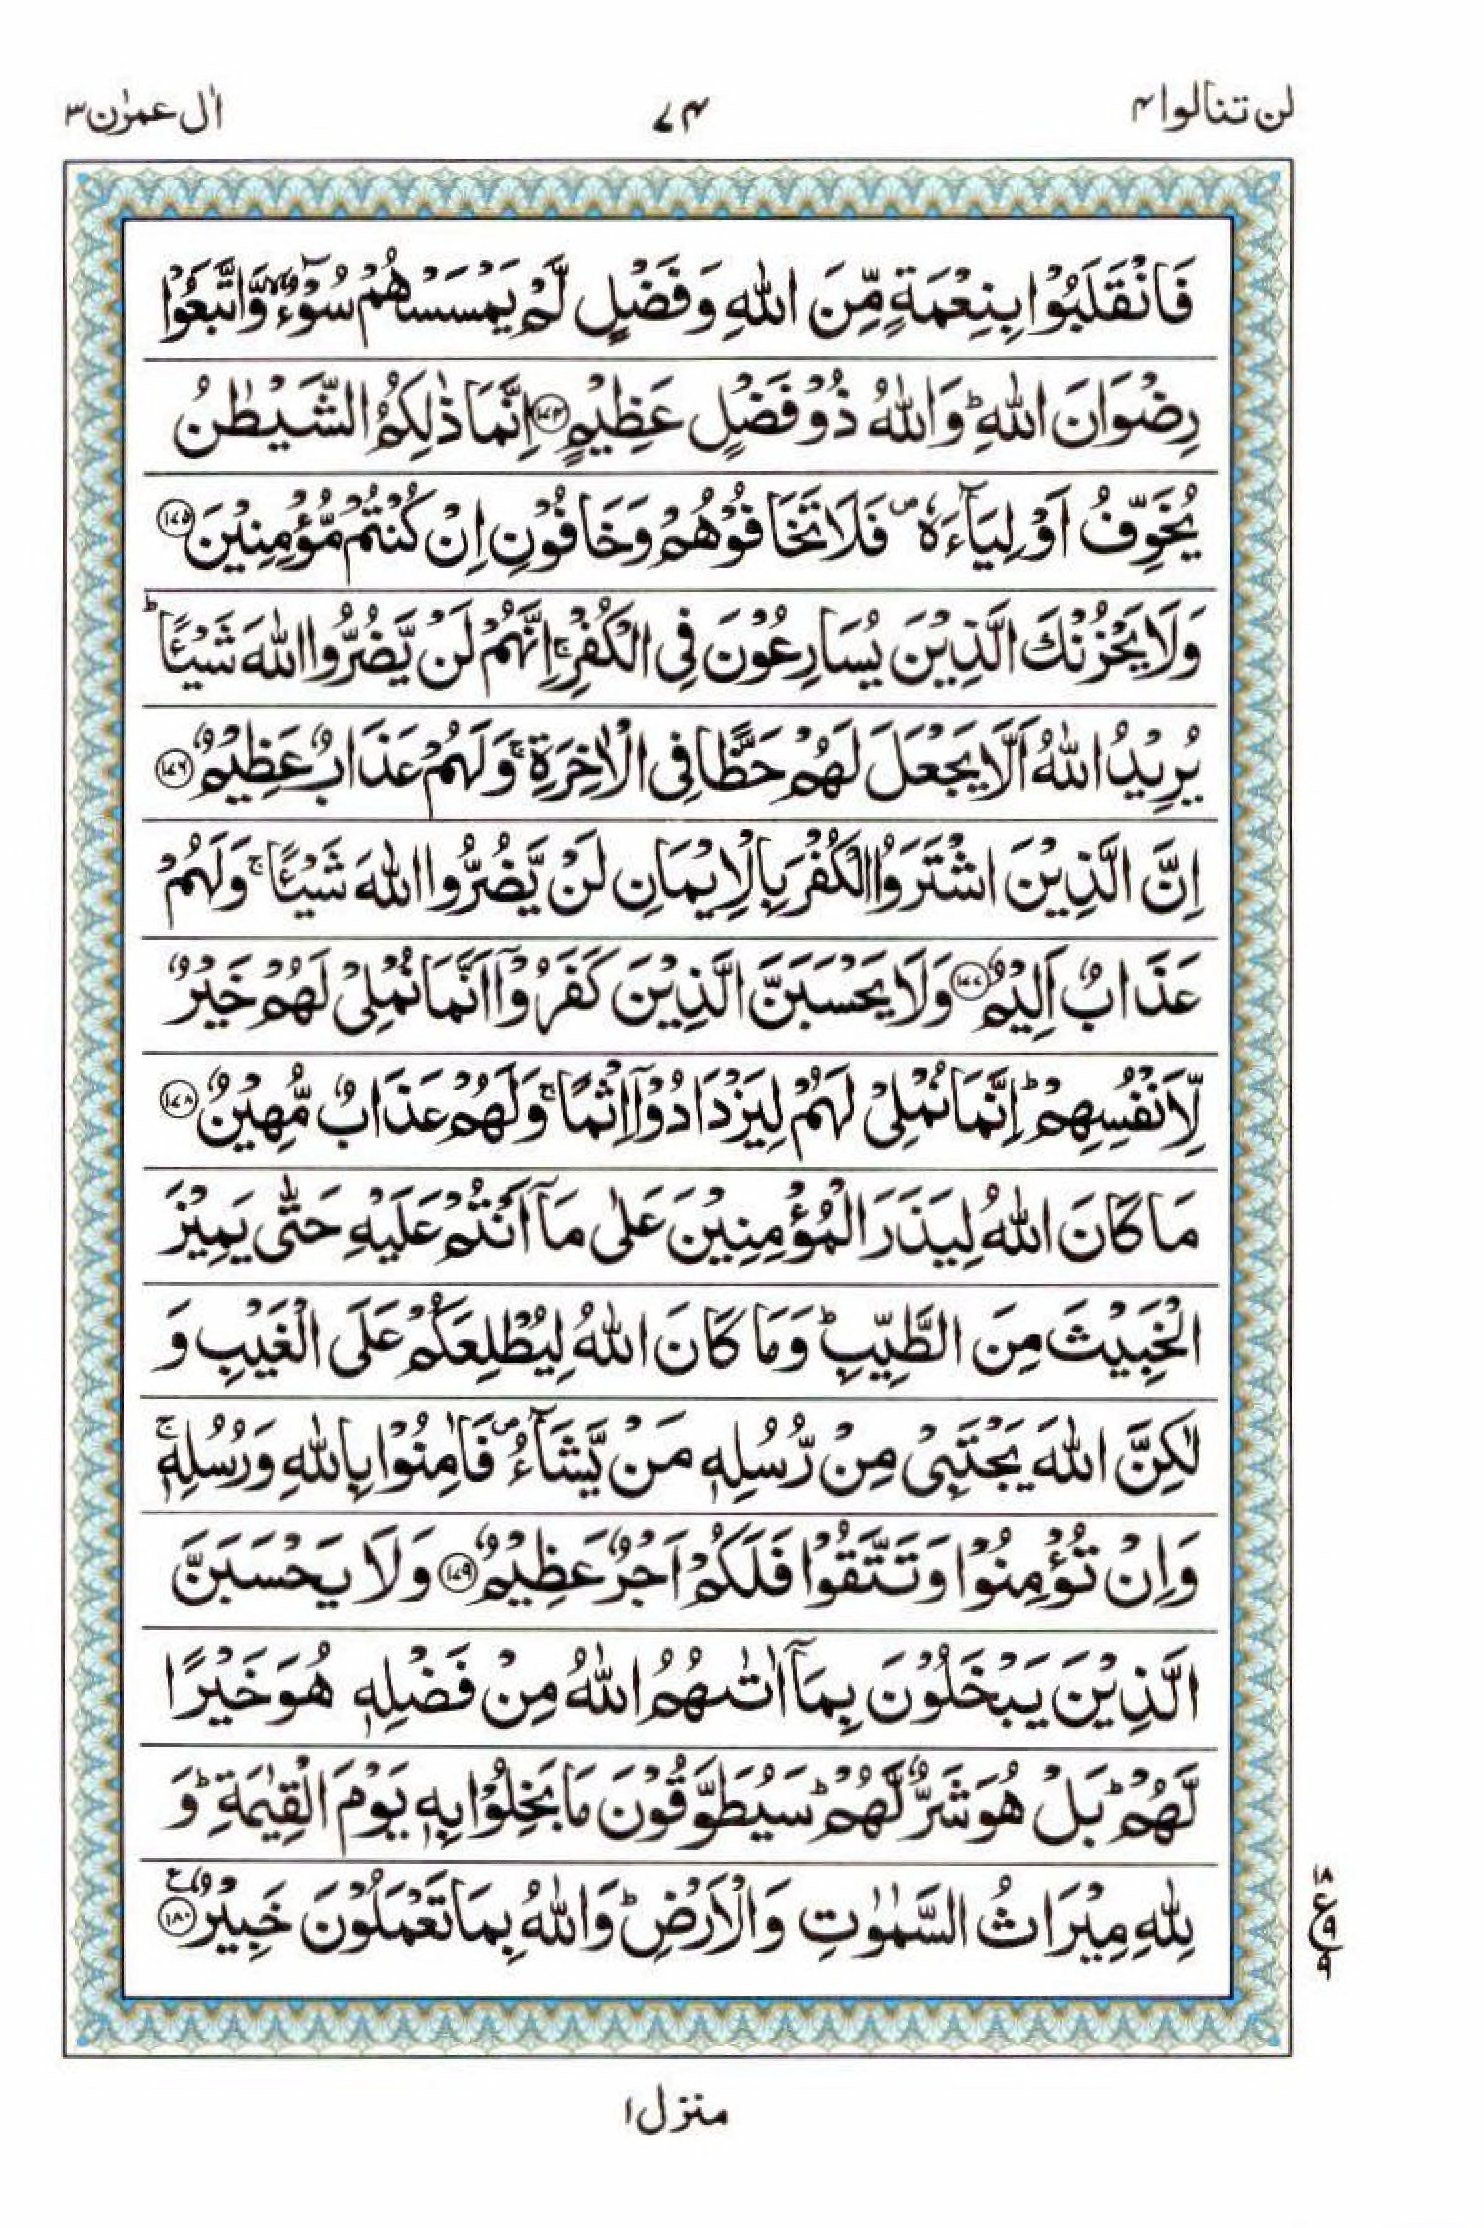 لن تنالوا ۴ ۷۴ اٰل عمرٰن ۳
فَانْقَلَبُوْا بِنِعْمَةٍ مِّنَ اللّٰهِ وَفَضْلٍ لَّمْ يَمْسَسْهُمْ سُوْٓءٌ ۙ وَّاتَّبَعُوْا
رِضْوَانَ اللّٰهِ ؕ وَاللّٰهُ ذُوْ فَضْلٍ عَظِيْمٍ ﴿۱۷۴﴾ اِنَّمَا ذٰلِكُمُ الشَّيْطٰنُ
يُخَوِّفُ اَوْلِيَآءَهٗ ۪ فَلَا تَخَافُوْهُمْ وَخَافُوْنِ اِنْ كُنْتُمْ مُّؤْمِنِيْنَ ﴿۱۷۵﴾
وَلَا يَحْزُنْكَ الَّذِيْنَ يُسَارِعُوْنَ فِى الْكُفْرِ ۚ اِنَّهُمْ لَنْ يَّضُرُّوا اللّٰهَ شَيْـًٔا ؕ
يُرِيْدُ اللّٰهُ اَلَّا يَجْعَلَ لَهُمْ حَظًّا فِى الْاٰخِرَةِ ۚ وَلَهُمْ عَذَابٌ عَظِيْمٌ ﴿۱۷۶﴾
اِنَّ الَّذِيْنَ اشْتَرَوُا الْكُفْرَ بِالْاِيْمَانِ لَنْ يَّضُرُّوا اللّٰهَ شَيْـًٔا ۚ وَلَهُمْ
عَذَابٌ اَلِيْمٌ ﴿۱۷۷﴾ وَلَا يَحْسَبَنَّ الَّذِيْنَ كَفَرُوْٓا اَنَّمَا نُمْلِىْ لَهُمْ خَيْرٌ
لِّاَنْفُسِهِمْ ؕ اِنَّمَا نُمْلِىْ لَهُمْ لِيَزْدَادُوْٓا اِثْمًا ۚ وَلَهُمْ عَذَابٌ مُّهِيْنٌ ﴿۱۷۸﴾
مَا كَانَ اللّٰهُ لِيَذَرَ الْمُؤْمِنِيْنَ عَلٰى مَآ اَنْتُمْ عَلَيْهِ حَتّٰى يَمِيْزَ
الْخَبِيْثَ مِنَ الطَّيِّبِ ؕ وَمَا كَانَ اللّٰهُ لِيُطْلِعَكُمْ عَلَى الْغَيْبِ وَ
لٰكِنَّ اللّٰهَ يَجْتَبِىْ مِنْ رُّسُلِهٖ مَنْ يَّشَآءُ ۪ فَاٰمِنُوْا بِاللّٰهِ وَرُسُلِهٖ ۚ
وَاِنْ تُؤْمِنُوْا وَتَتَّقُوْا فَلَكُمْ اَجْرٌ عَظِيْمٌ ﴿۱۷۹﴾ وَلَا يَحْسَبَنَّ
الَّذِيْنَ يَبْخَلُوْنَ بِمَآ اٰتٰىهُمُ اللّٰهُ مِنْ فَضْلِهٖ هُوَ خَيْرًا
لَّهُمْ ؕ بَلْ هُوَ شَرٌّ لَّهُمْ ؕ سَيُطَوَّقُوْنَ مَا بَخِلُوْا بِهٖ يَوْمَ الْقِيٰمَةِ ؕ وَ
لِلّٰهِ مِيْرَاثُ السَّمٰوٰتِ وَالْاَرْضِ ؕ وَاللّٰهُ بِمَا تَعْمَلُوْنَ خَبِيْرٌ ﴿۱۸۰﴾
۱۸
ع ۹
۹
منزل ۱